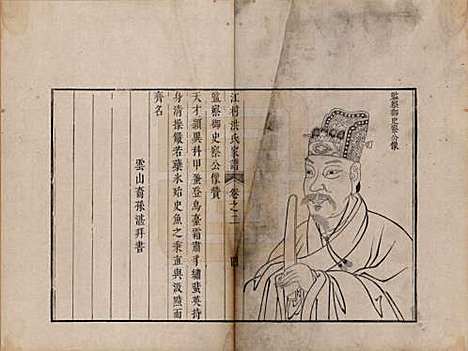 監察御史察公像
江村洪氏家譜 卷之二 四
監察御史察公像贊
天才穎異科甲蚤登烏臺霜肅豸繡蜚英持
身清操飯若蘗氷始史魚之秉直與汲黯而
齊名
雲山裔孫湛拜書